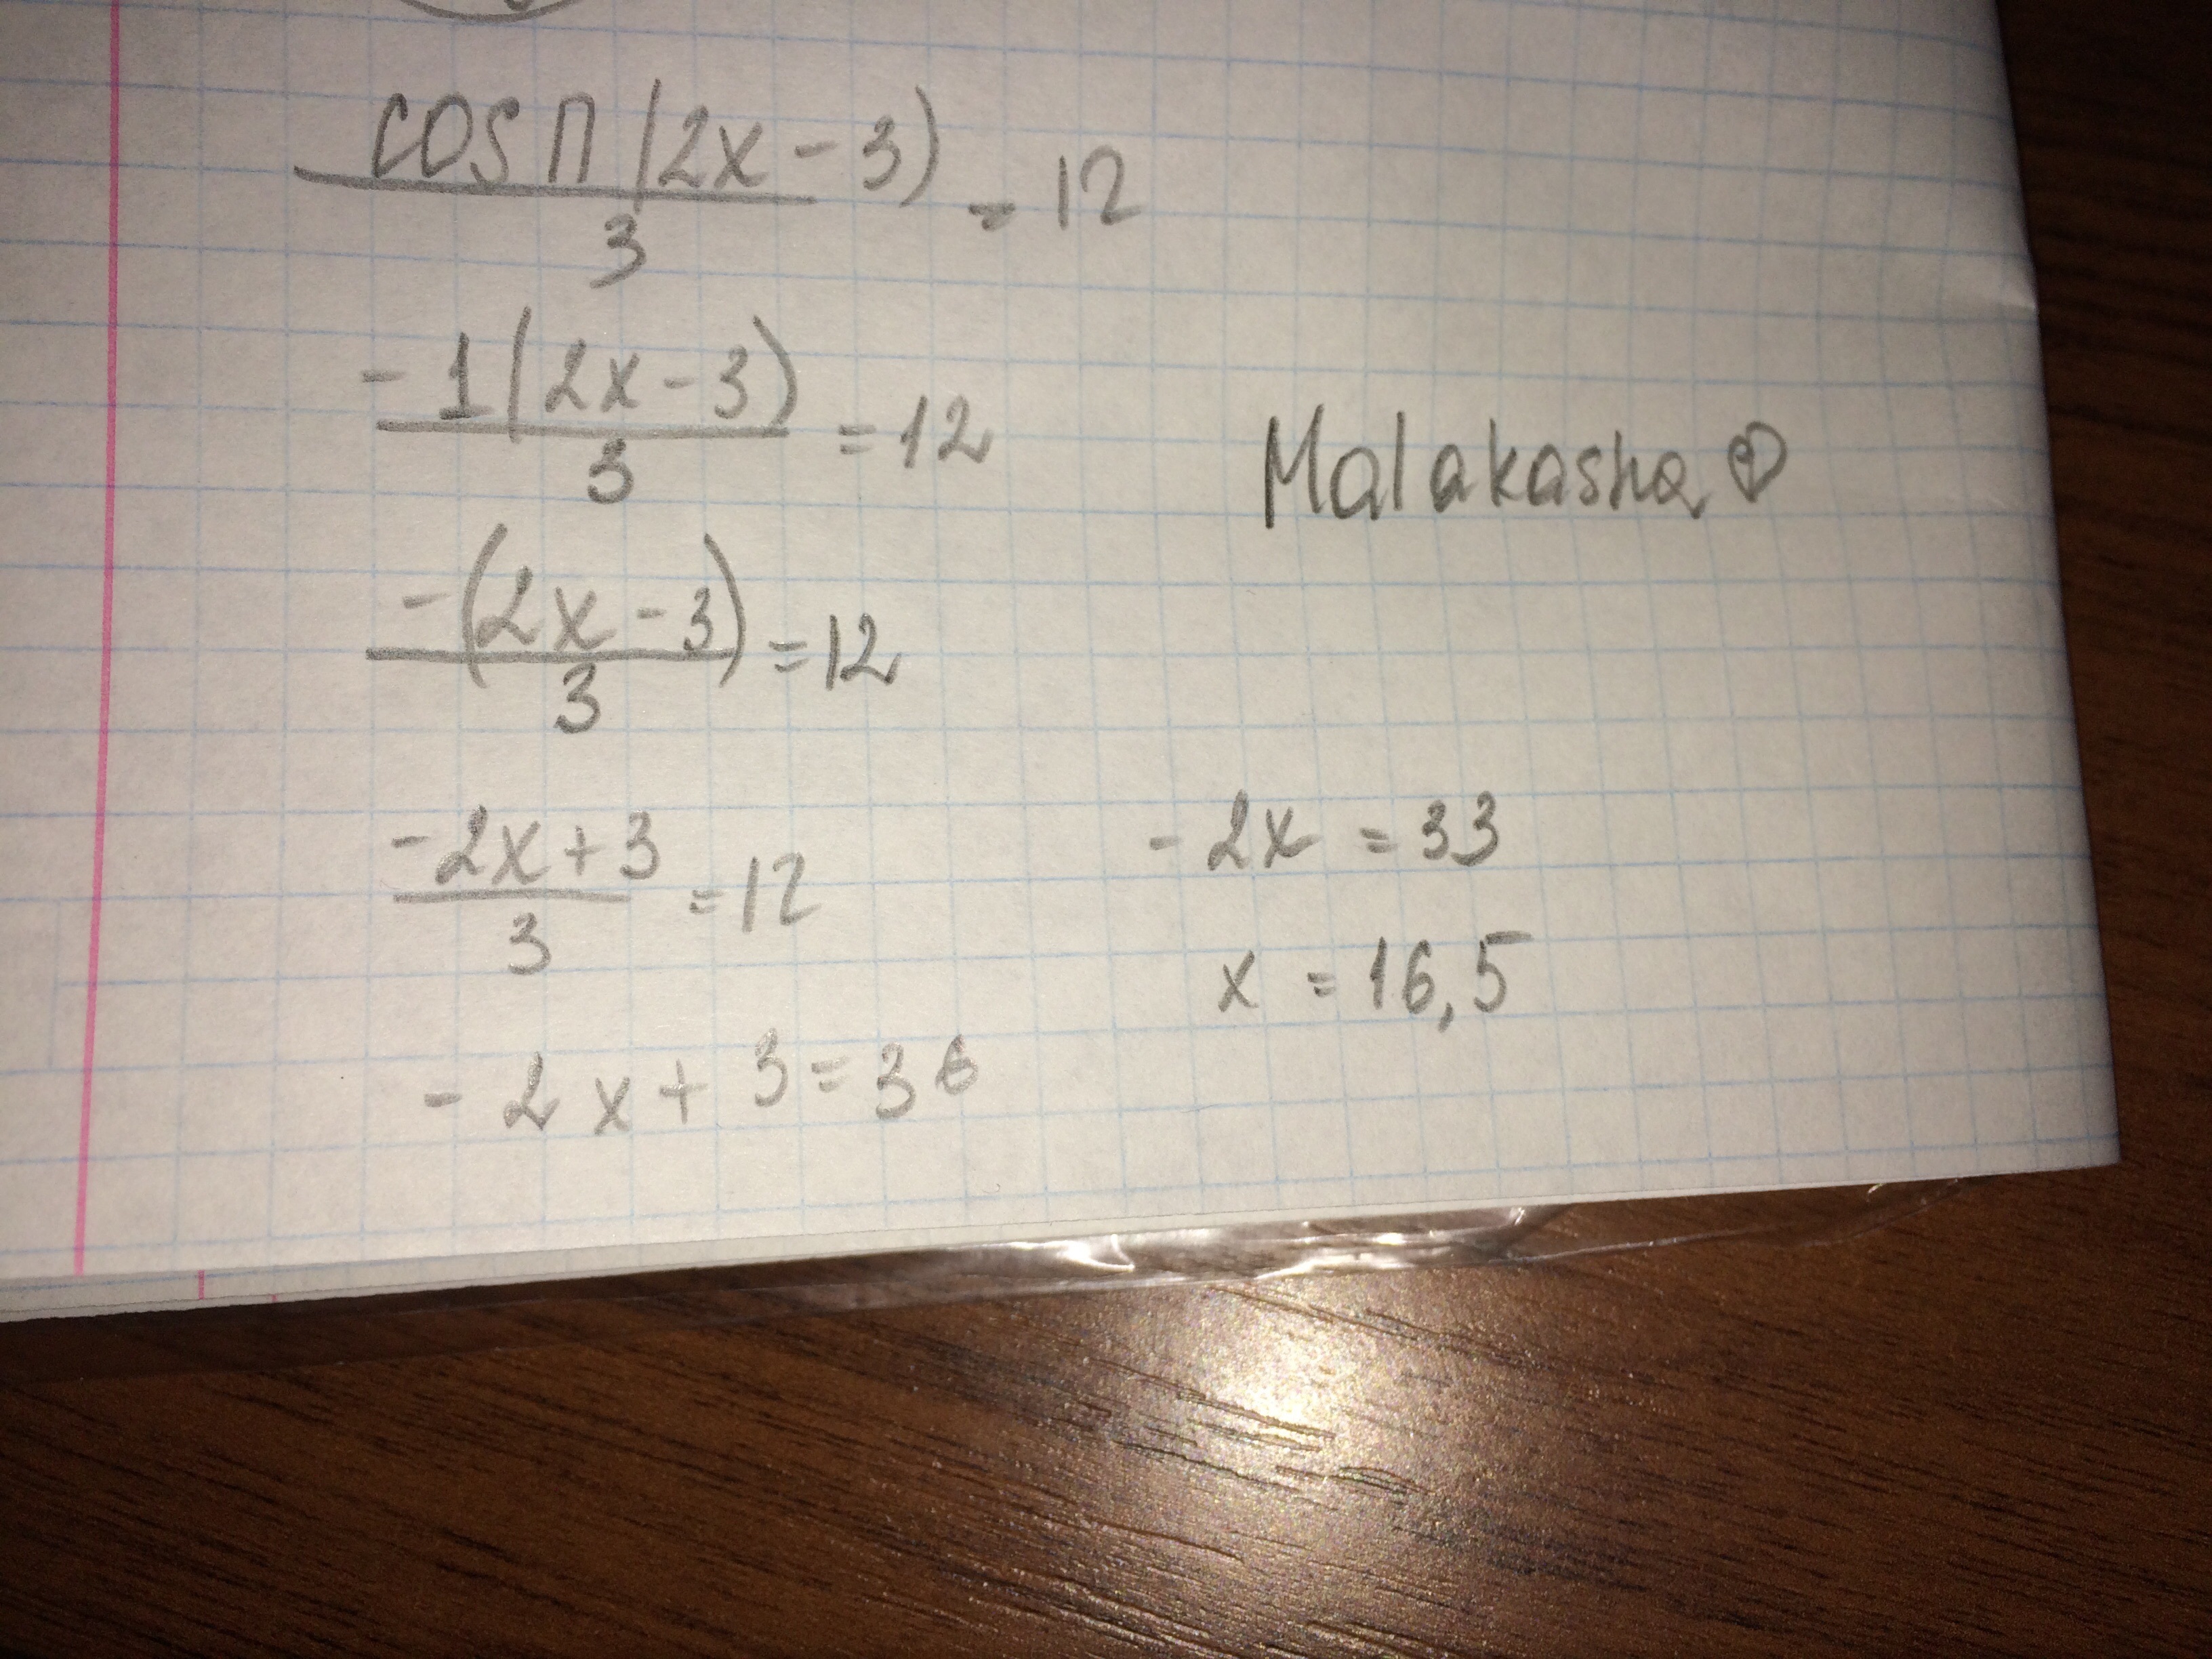 cos π (2x - 3) / 3 = 12
-1(2x - 3) / 3 = 12
-(2x - 3) / 3 = 12
-2x + 3 / 3 = 12
-2x + 3 = 36
Malakasha
-2x = 33
x = 16,5